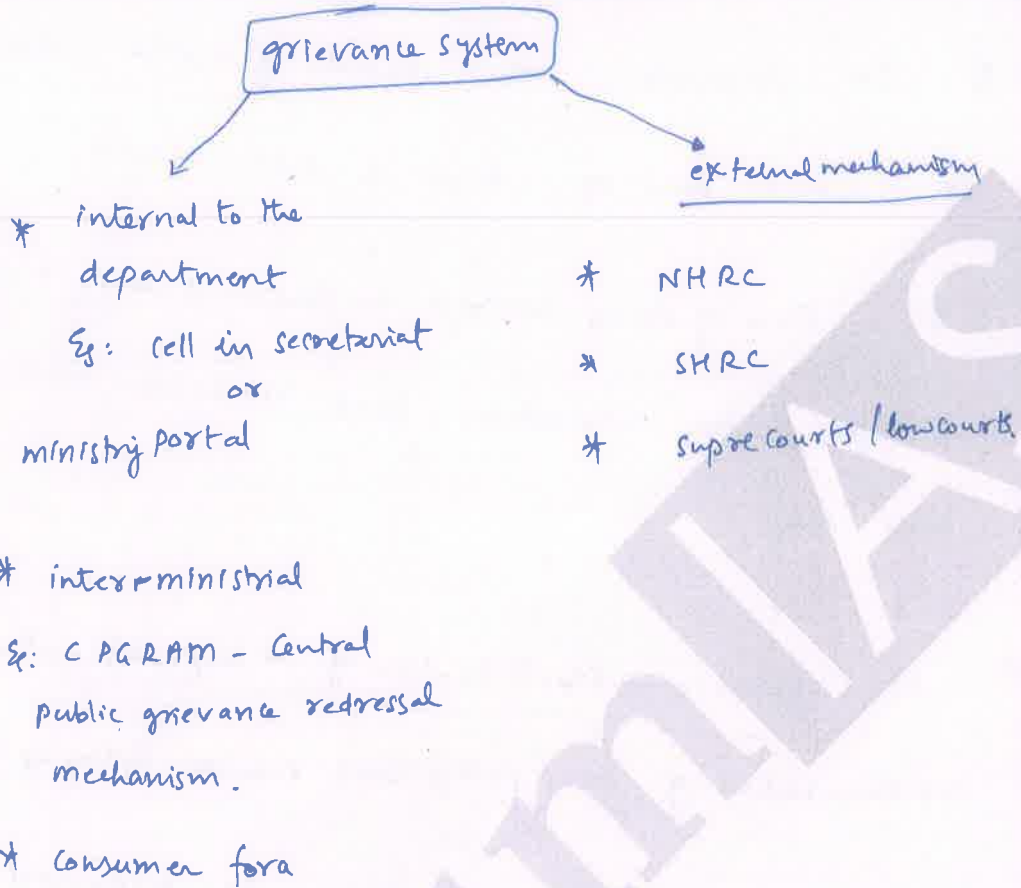 grievance system
* internal to the
department
Eg: cell in secretariat
or
ministry portal
* inter-ministrial
Eg: CPGRAM - Central
public grievance redressal
mechanism.
* Consumer fora
external mechanism
* NHRC
* SHRC
* supre courts / low courts.
mIAS